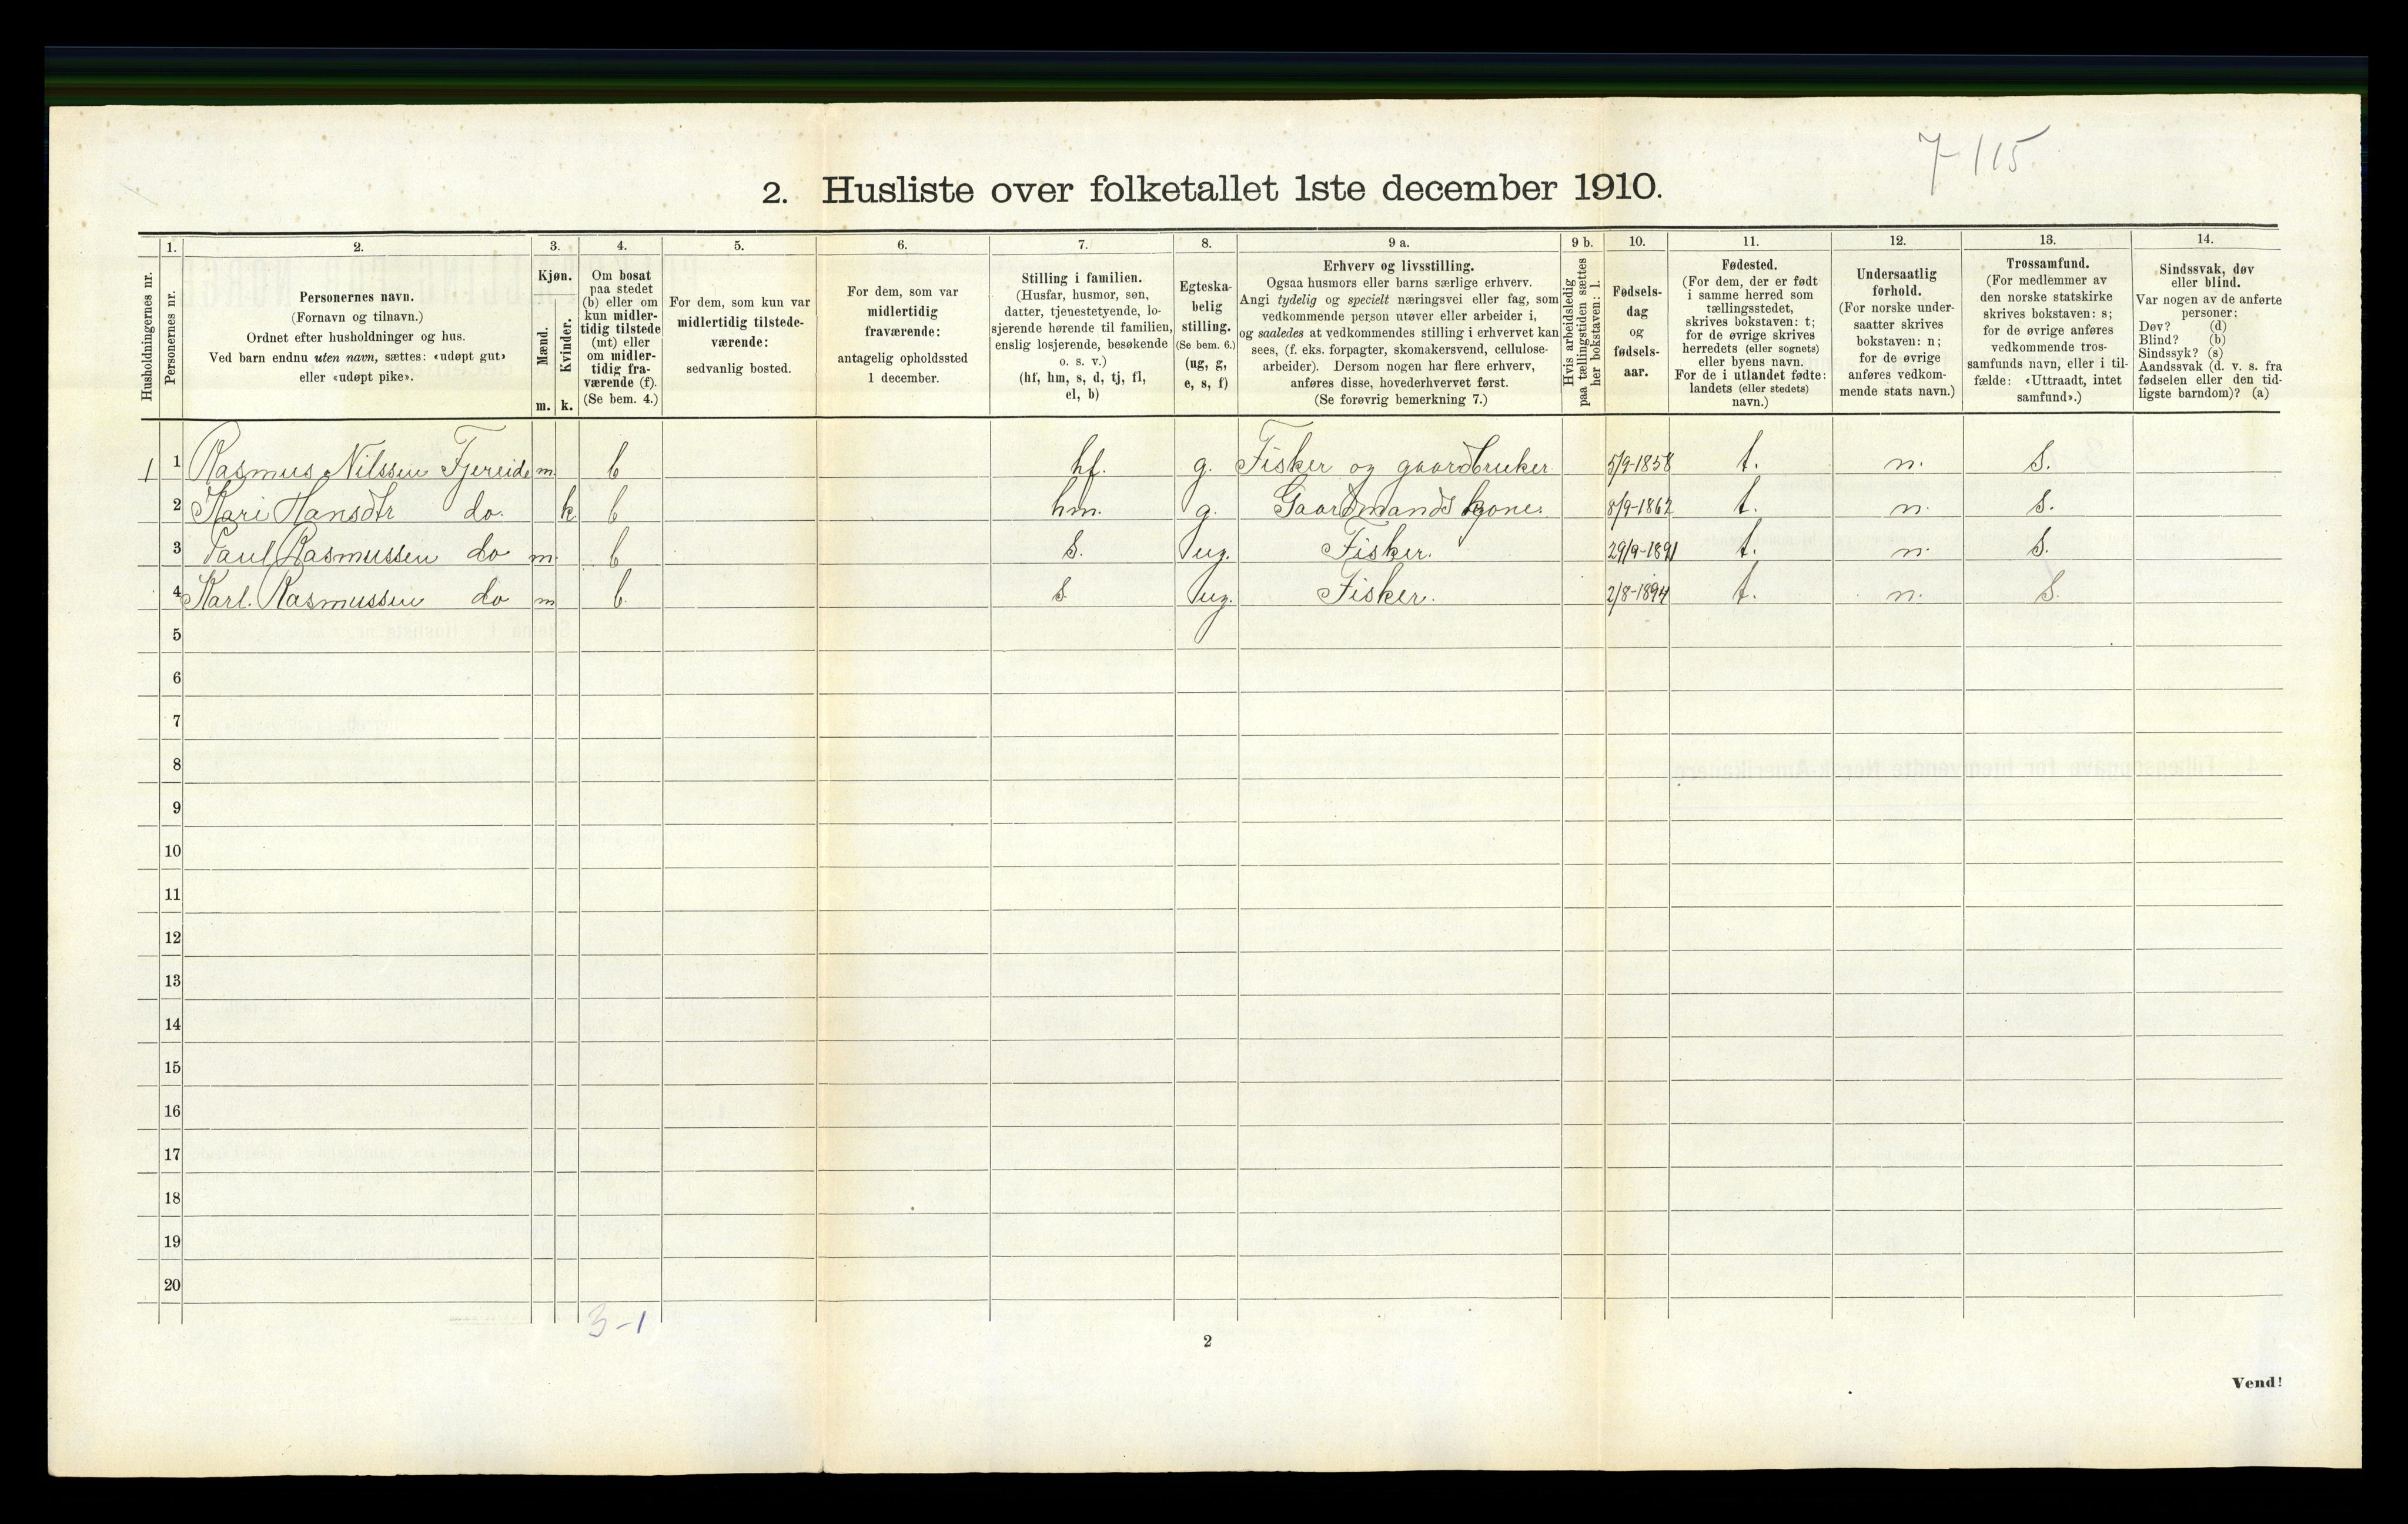 7-115
2. Husliste over folketallet 1ste december 1910.
Husholdningernes nr.
1.
Personernes nr.
2.
Personernes navn.
(Fornavn og tilnavn.)
Ordnet efter husholdninger og hus.
Ved barn endnu uten navn, sættes: «udøpt gut»
eller «udøpt pike».
3.
Kjøn.
Mænd.
Kvinder.
m. k.
4.
Om bosat
paa stedet
(b) eller om
kun midler-
tidig tilstede
(mt) eller
om midler-
tidig fra-
værende (f).
(Se bem. 4.)
5.
For dem, som kun var
midlertidig tilstede-
værende:
sedvanlig bosted.
6.
For dem, som var
midlertidig
fraværende:
antagelig opholdssted
1 december.
7.
Stilling i familien.
(Husfar, husmor, søn,
datter, tjenestetyende, lo-
sjerende hørende til familien,
enslig losjerende, besøkende
o. s. v.)
(hf, hm, s, d, tj, fl,
el, b)
8.
Egteska-
belig
stilling.
(Se bem. 6.)
(ug, g,
e, s, f)
9 a.
Erhverv og livsstilling.
Ogsaa husmors eller barns særlige erhverv.
Angi tydelig og specielt næringsvei eller fag, som
vedkommende person utøver eller arbeider i,
og saaledes at vedkommendes stilling i erhvervet kan
sees, (f. eks. forpagter, skomakersvend, cellulose-
arbeider). Dersom nogen har flere erhverv,
anføres disse, hovederhvervet først.
(Se forøvrig bemerkning 7.)
9 b.
Hvis arbeidsledig
paa tællingstiden sættes
her bokstaven: l.
10.
Fødsels-
dag
og
fødsels-
aar.
11.
Fødested.
(For dem, der er født
i samme herred som
tællingsstedet,
skrives bokstaven: t;
for de øvrige skrives
herredets (eller sognets)
eller byens navn.
For de i utlandet fødte:
landets (eller stedets)
navn.)
12.
Undersaatlig
forhold.
(For norske under-
saatter skrives
bokstaven: n;
for de øvrige
anføres vedkom-
mende stats navn.)
13.
Trossamfund.
(For medlemmer av
den norske statskirke
skrives bokstaven: s;
for de øvrige anføres
vedkommende tros-
samfunds navn, eller i til-
fælde: «Uttraadt, intet
samfund».)
14.
Sindssvak, døv
eller blind.
Var nogen av de anførte
personer:
Døv? (d)
Blind? (b)
Sindssyk? (s)
Aandssvak (d. v. s. fra
fødselen eller den tid-
ligste barndom)? (a)
1 1 Rasmus Nilssen Fjereide m. b hf. g. Fisker og gaardbruker 5/9-1858 t. n. S.
2 Kari Hansdtr do. k b hm. g. Gaardmands kone. 8/9-1862 t. n. S.
3 Paul Rasmussen do m. b S. ug. Fisker. 29/9-1891 t. n. S.
4 Karl. Rasmussen do m b. S. ug. Fisker. 2/8-1894 t. n. S.
5
6
7
8
9
10
11
12
13
14
15
16
17
18
19
20
3-1
2
Vend!